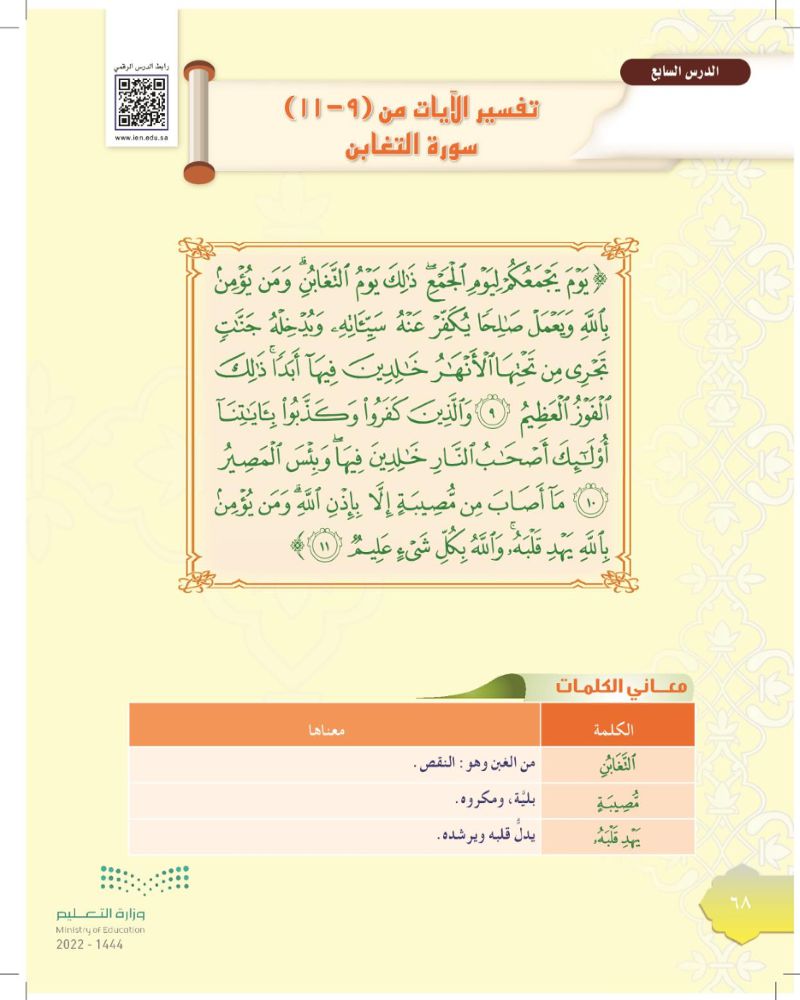 رابط الدرس الرقمي
www.ien.edu.sa
الدرس السابع
تفسير الآيات من (٩-١١)
سورة التغابن
﴿ يَوْمَ يَجْمَعُكُمْ لِيَوْمِ ٱلْجَمْعِ ۖ ذَٰلِكَ يَوْمُ ٱلتَّغَابُنِ ۗ وَمَن يُؤْمِنۢ
بِٱللَّهِ وَيَعْمَلْ صَـٰلِحًا يُكَفِّرْ عَنْهُ سَيِّـَٔاتِهِۦ وَيُدْخِلْهُ جَنَّـٰتٍ
تَجْرِى مِن تَحْتِهَا ٱلْأَنْهَـٰرُ خَـٰلِدِينَ فِيهَآ أَبَدًا ۚ ذَٰلِكَ
ٱلْفَوْزُ ٱلْعَظِيمُ ٩ وَٱلَّذِينَ كَفَرُوا۟ وَكَذَّبُوا۟ بِـَٔايَـٰتِنَآ
أُو۟لَـٰٓئِكَ أَصْحَـٰبُ ٱلنَّارِ خَـٰلِدِينَ فِيهَا ۖ وَبِئْسَ ٱلْمَصِيرُ
١٠ مَآ أَصَابَ مِن مُّصِيبَةٍ إِلَّا بِإِذْنِ ٱللَّهِ ۗ وَمَن يُؤْمِنۢ
بِٱللَّهِ يَهْدِ قَلْبَهُۥ ۚ وَٱللَّهُ بِكُلِّ شَىْءٍ عَلِيمٌ ١١ ﴾
معاني الكلمات
الكلمة معناها
ٱلتَّغَابُنِ من الغبن وهو: النقص.
مُّصِيبَةٍ بليَّة، ومكروه.
يَهْدِ قَلْبَهُۥ يدلُّ قلبه ويرشده.
وزارة التعليم
Ministry of Education
2022 - 1444
٦٨